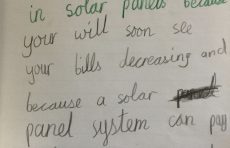 in solar panels because
your will soon see
your bills decreasing and
because a solar
panel system can pay